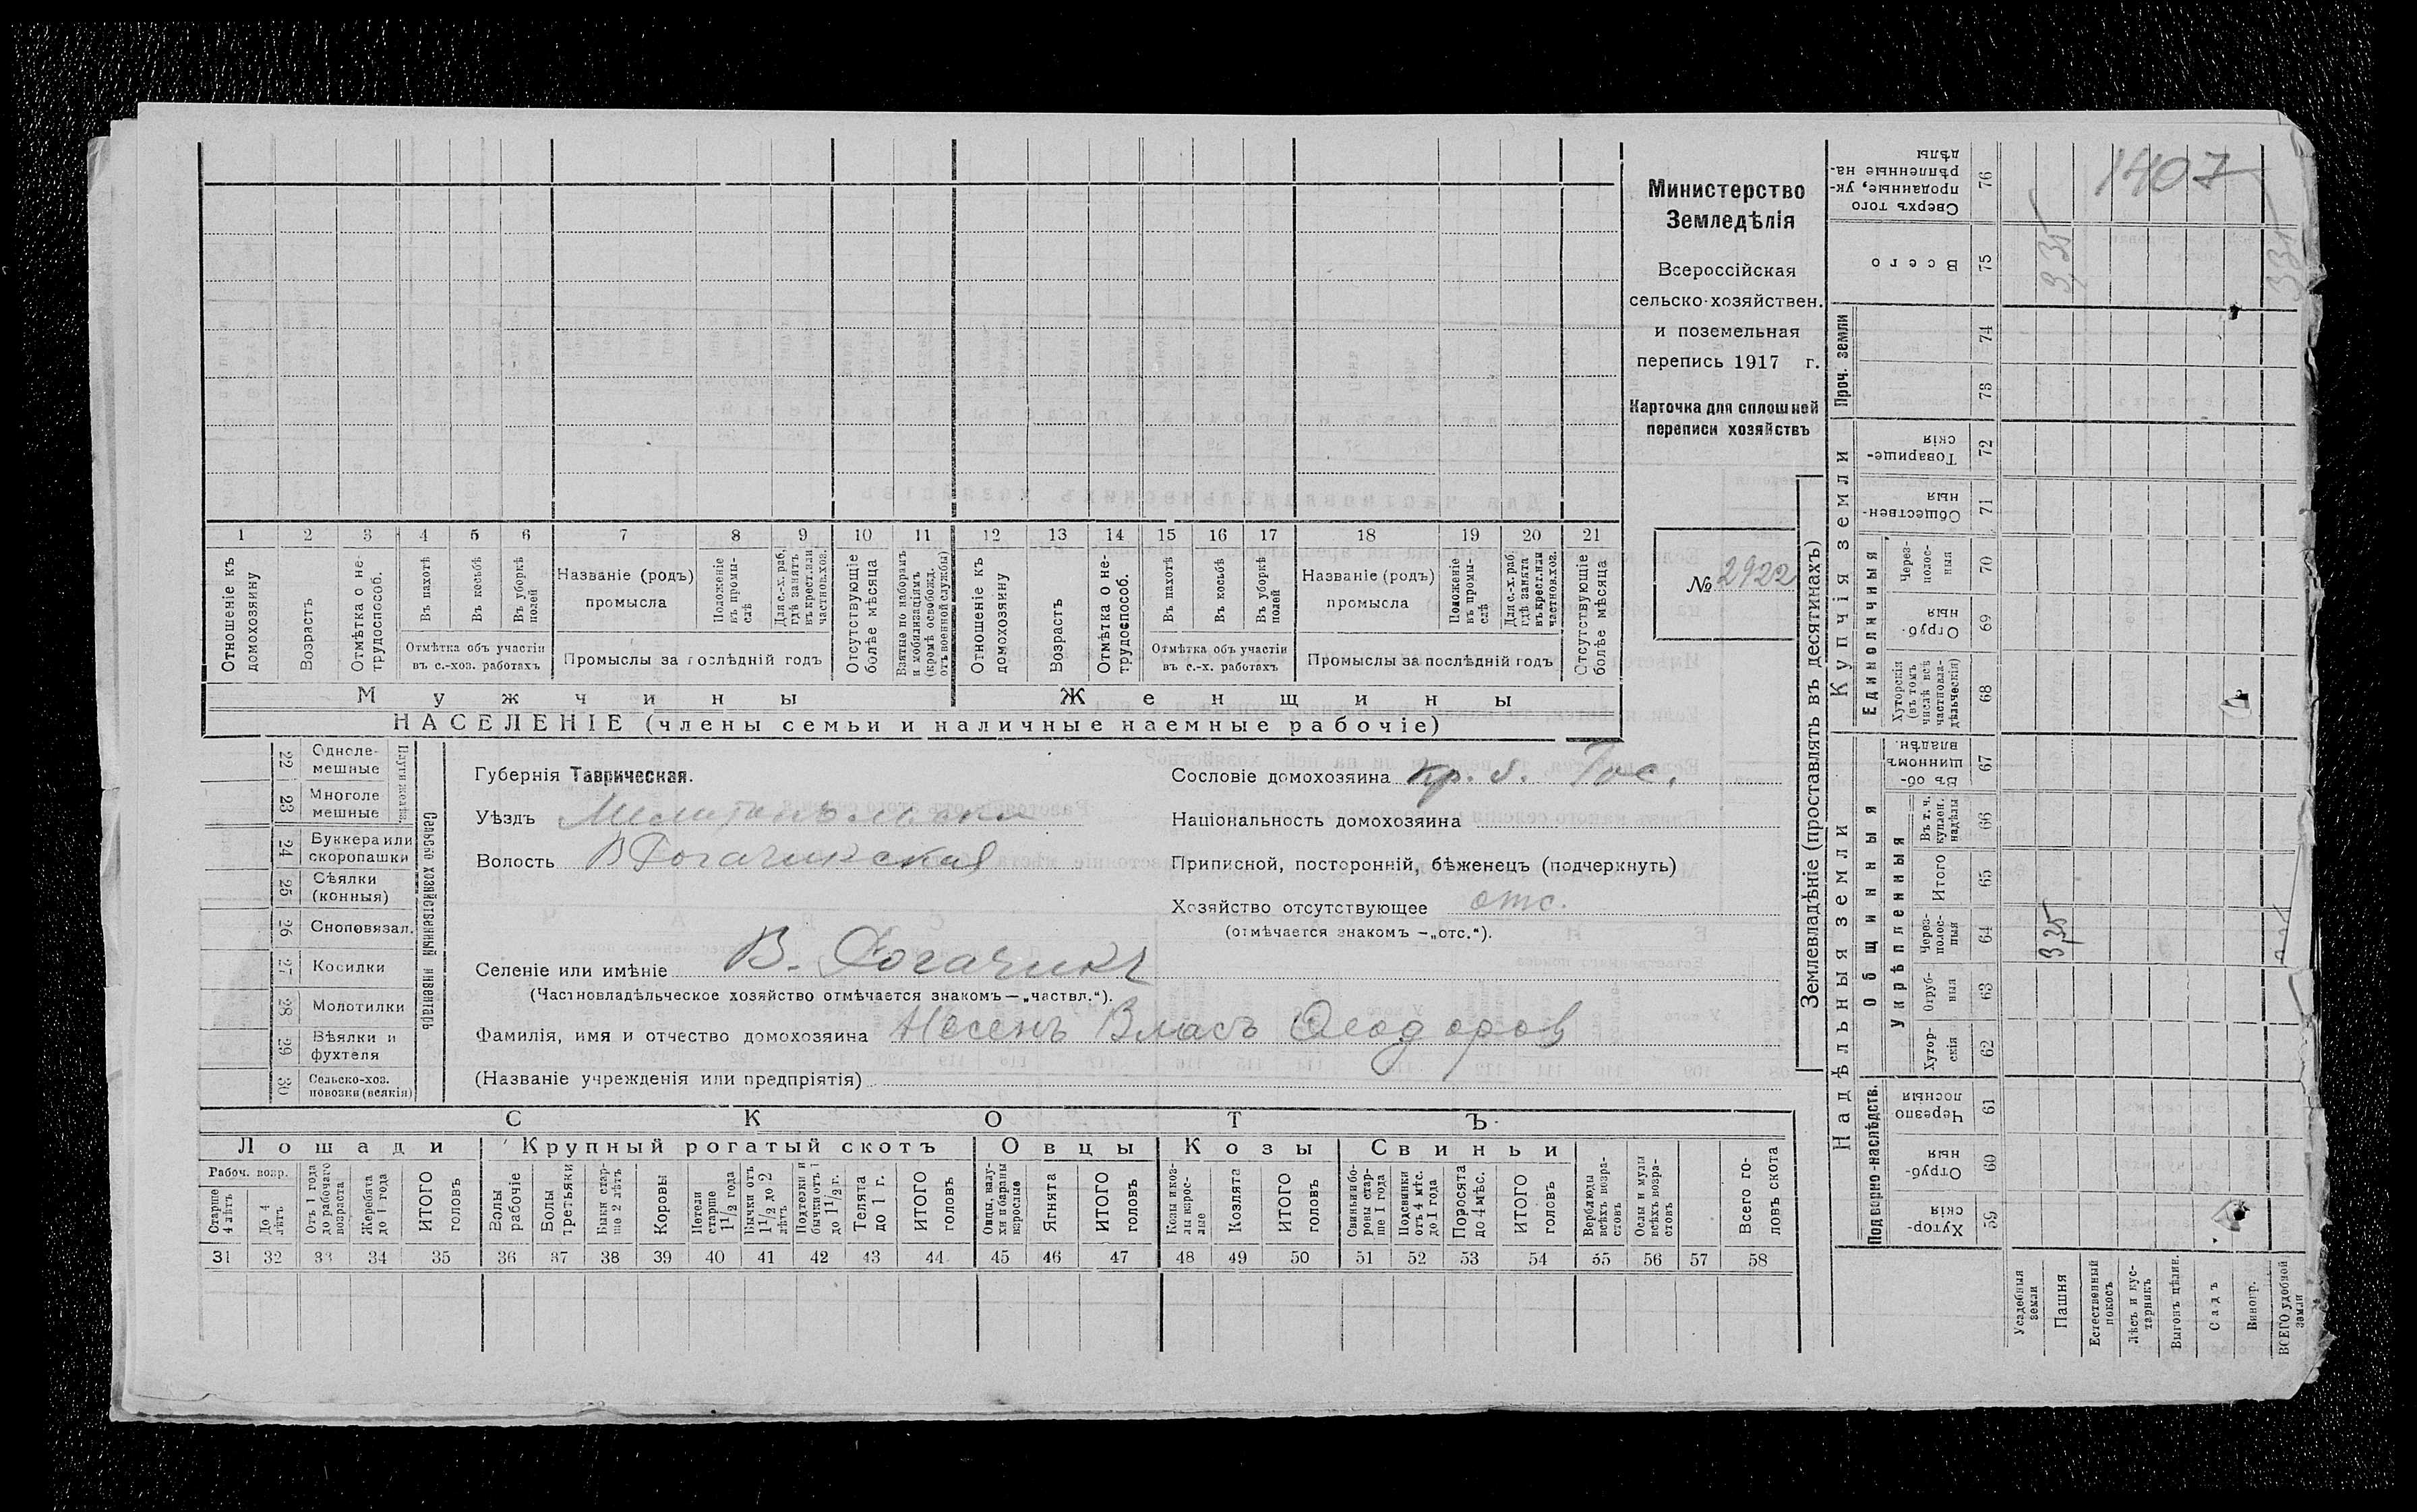 1407
Министерство
Земледѣлія
Всероссійская
сельско-хозяйствен.
и поземельная
перепись 1917 г.
Карточка для сплошней
переписи хозяйствъ
№ 2922
1 2 3 4 5 6 7 8 9 10 11 12 13 14 15 16 17 18 19 20 21
Отношеніе къ домохозяину
Возрастъ
Отмѣтка о не-трудоспособ.
Въ пахотѣ
Въ косьбѣ
Въ уборкѣ полей
Отмѣтка объ участіи
въ с.-хоз. работахъ
Названіе (родъ)
промысла
Положеніе въ промы-слѣ
Для с.-х. раб. гдѣ занятъ въ крест. или частнов. хоз.
Промыслы за послѣдній годъ
Отсутствующіе болѣе мѣсяца
Взятые по наборамъ и мобилизаціямъ (кромѣ освобожд. отъ военной службы)
Отношеніе къ домохозяину
Возрастъ
Отмѣтка о не-трудоспособ.
Въ пахотѣ
Въ косьбѣ
Въ уборкѣ полей
Отмѣтка объ участіи
въ с.-х. работахъ
Названіе (родъ)
промысла
Положеніе въ промы-слѣ
Для с.-х. раб. гдѣ занята въ крест. или частнов. хоз.
Промыслы за послѣдній годъ
Отсутствующіе болѣе мѣсяца
Мужчины Женщины
НАСЕЛЕНІЕ (члены семьи и наличные наемные рабочіе)
22 Одноле-мешные
23 Многоле мешные
Плуги желѣз.
24 Буккера или скоропашки
25 Сѣялки (конныя)
26 Сноповязал.
27 Косилки
28 Молотилки
29 Вѣялки и фухтеля
30 Сельско-хоз. повозки (всякія)
Сельско хозяйственный инвентарь
Губернія Таврическая.
Уѣздъ
Волость В Рогачикская
Сословіе домохозяина кр. б. Гос.
Національность домохозяина
Приписной, посторонній, бѣженецъ (подчеркнуть)
Хозяйство отсутствующее отс.
(отмѣчается знакомъ —„отс.“).
Селеніе или имѣніе В. Рогачикъ
(Частновладѣльческое хозяйство отмѣчается знакомъ — „частвл.“).
Фамилія, имя и отчество домохозяина Носенъ Власъ Ѳеодоровъ
(Названіе учрежденія или предпріятія)
СКОТЪ
Лошади Крупный рогатый скотъ Овцы Козы Свиньи
Рабоч. возр.
Старше 4 лѣтъ
До 4 лѣтъ
Отъ 1 года до рабочаго возраста
Жеребята до 1 года
ИТОГО головъ
Волы рабочіе
Волы третьяки
Быки стар-ше 2 лѣтъ
Коровы
Нетели старше 1 1/2 года
Бычки отъ 1 1/2 до 2 лѣтъ
Подтелки и бычки отъ 1 до 1 1/2 г.
Телята до 1 г.
ИТОГО головъ
Овцы, валу-хи и бараны взрослые
Ягнята
ИТОГО головъ
Козы и коз-лы взрос-лые
Козлята
ИТОГО головъ
Свиньи и бо-ровы стар-ше 1 года
Подсвинки отъ 4 мѣс. до 1 года
Поросята до 4 мѣс.
ИТОГО головъ
Верблюды всѣхъ возра-стовъ
Ослы и мулы всѣхъ возра-стовъ
Всего го-ловъ скота
31 32 33 34 35 36 37 38 39 40 41 42 43 44 45 46 47 48 49 50 51 52 53 54 55 56 57 58
Землевладѣніе (проставлять въ десятинахъ)
Надѣльныя земли
Купчія земли
Подворно-наслѣдств.
Общинныя
Укрѣпленныя
Единоличныя
Проч. земли
Хутор-скія 59
Отруб-ныя 60
Черезпо лосныя 61
Хутор-скія 62
Отруб-ныя 63
Через-полос-ныя 64
Итого 65
Въ т. ч. куплен. надѣлы 66
Въ об-щинномъ владѣн. 67
Хуторскія (въ томъ числѣ всѣ частновла-дѣльческія) 68
Отруб-ныя 69
Через-полос-ныя 70
Обществен-ныя 71
Товарище-скія 72
73
74
Всего 75
Сверхъ того проданные, ук-рѣпленные на-дѣлы 76
Усадебныя земли
Пашня
3,35
3,35
Естественный покосъ
Лѣсъ и кус-тарникъ
Выгонъ цѣлин.
Садъ
Виногр.
ВСЕГО удобной земли
335